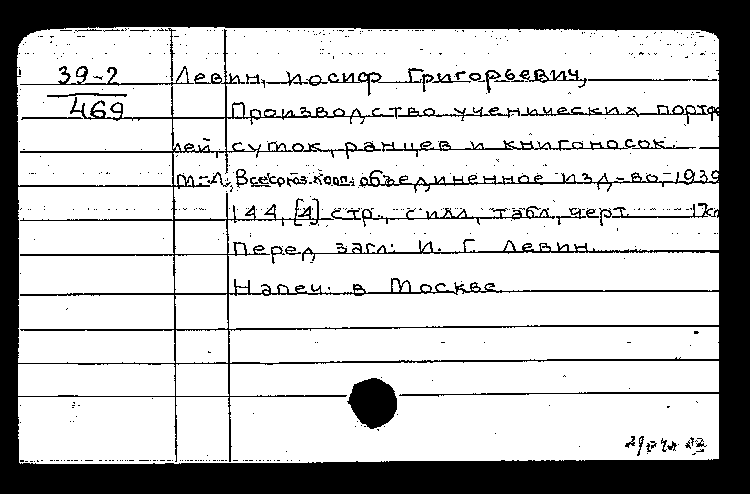 39-2
469
Левин, Иосиф Григорьевич,
Производство ученических портфе
лей, сумок, ранцев и книгоносок.
М.-Л., Всесоюз. кооп. объединенное изд-во, 1939
144, [4] стр., с илл., табл., черт.
Перед загл.: И. Г. Левин.
Напеч. в Москве